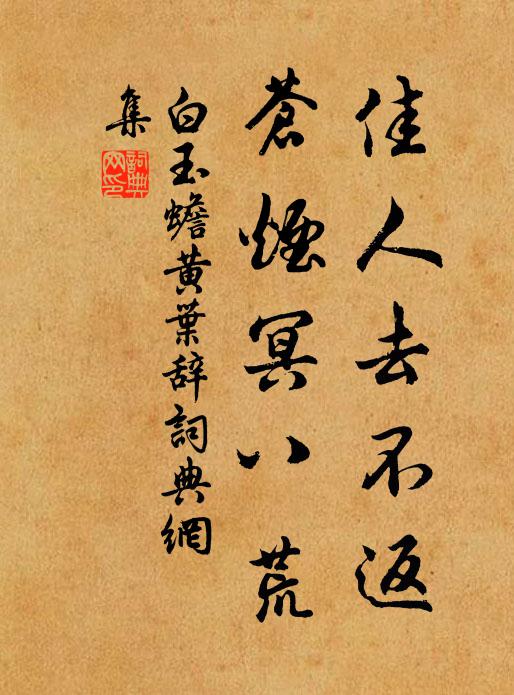 佳人去不返
蒼煙冥八荒
白玉蟾黄葉辞詞典網
集
詞典
网印